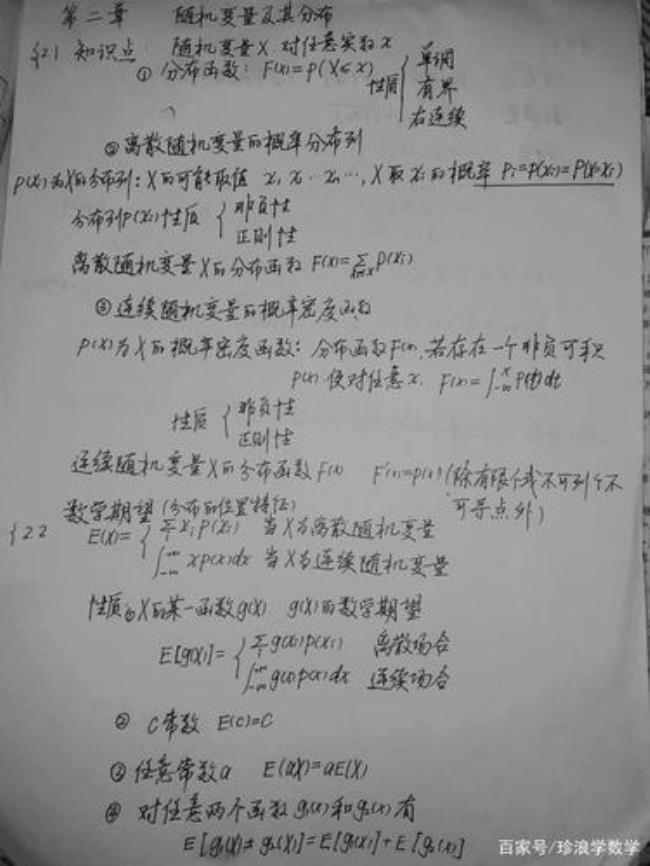 第二章 随机变量及其分布
§2.1 知识点: 随机变量X, 对任意实数x
① 分布函数: F(x)=P(X≤x) 性质 { 单调
有界
右连续
② 离散随机变量的概率分布列
P(xi)为X的分布列: X的可能取值 x1, x2 … xn …, X取xi的概率 Pi=P(xi)=P(X=xi)
分布列P(xi)性质 { 非负性
正则性
离散随机变量X的分布函数 F(x)=∑xi≤x P(xi)
③ 连续随机变量的概率密度函数
P(x)为X的概率密度函数: 分布函数F(x), 若存在一个非负可积
P(x) 使对任意x, F(x)=∫-∞^x P(t)dt
性质 { 非负性
正则性
连续随机变量X的分布函数F(x) F'(x)=p(x) (除有限个或不可列个不
可导点外)
数学期望 (分布的位置特征)
§2.2 E(X)= { ∑i xi P(xi) 当X为离散随机变量
∫-∞^+∞ xp(x)dx 当X为连续随机变量
性质 ① X的某一函数g(X), g(X)的数学期望
E[g(X)]= { ∑i g(xi)p(xi) 离散场合
∫-∞^+∞ g(x)p(x)dx 连续场合
② C常数 E(C)=C
③ 任意常数a E(aX)=aE(X)
④ 对任意两个函数g1(x)和g2(x)有
E[g1(X)±g2(X)]=E[g1(X)]+E[g2(X)]
百家号/珍浪学数学